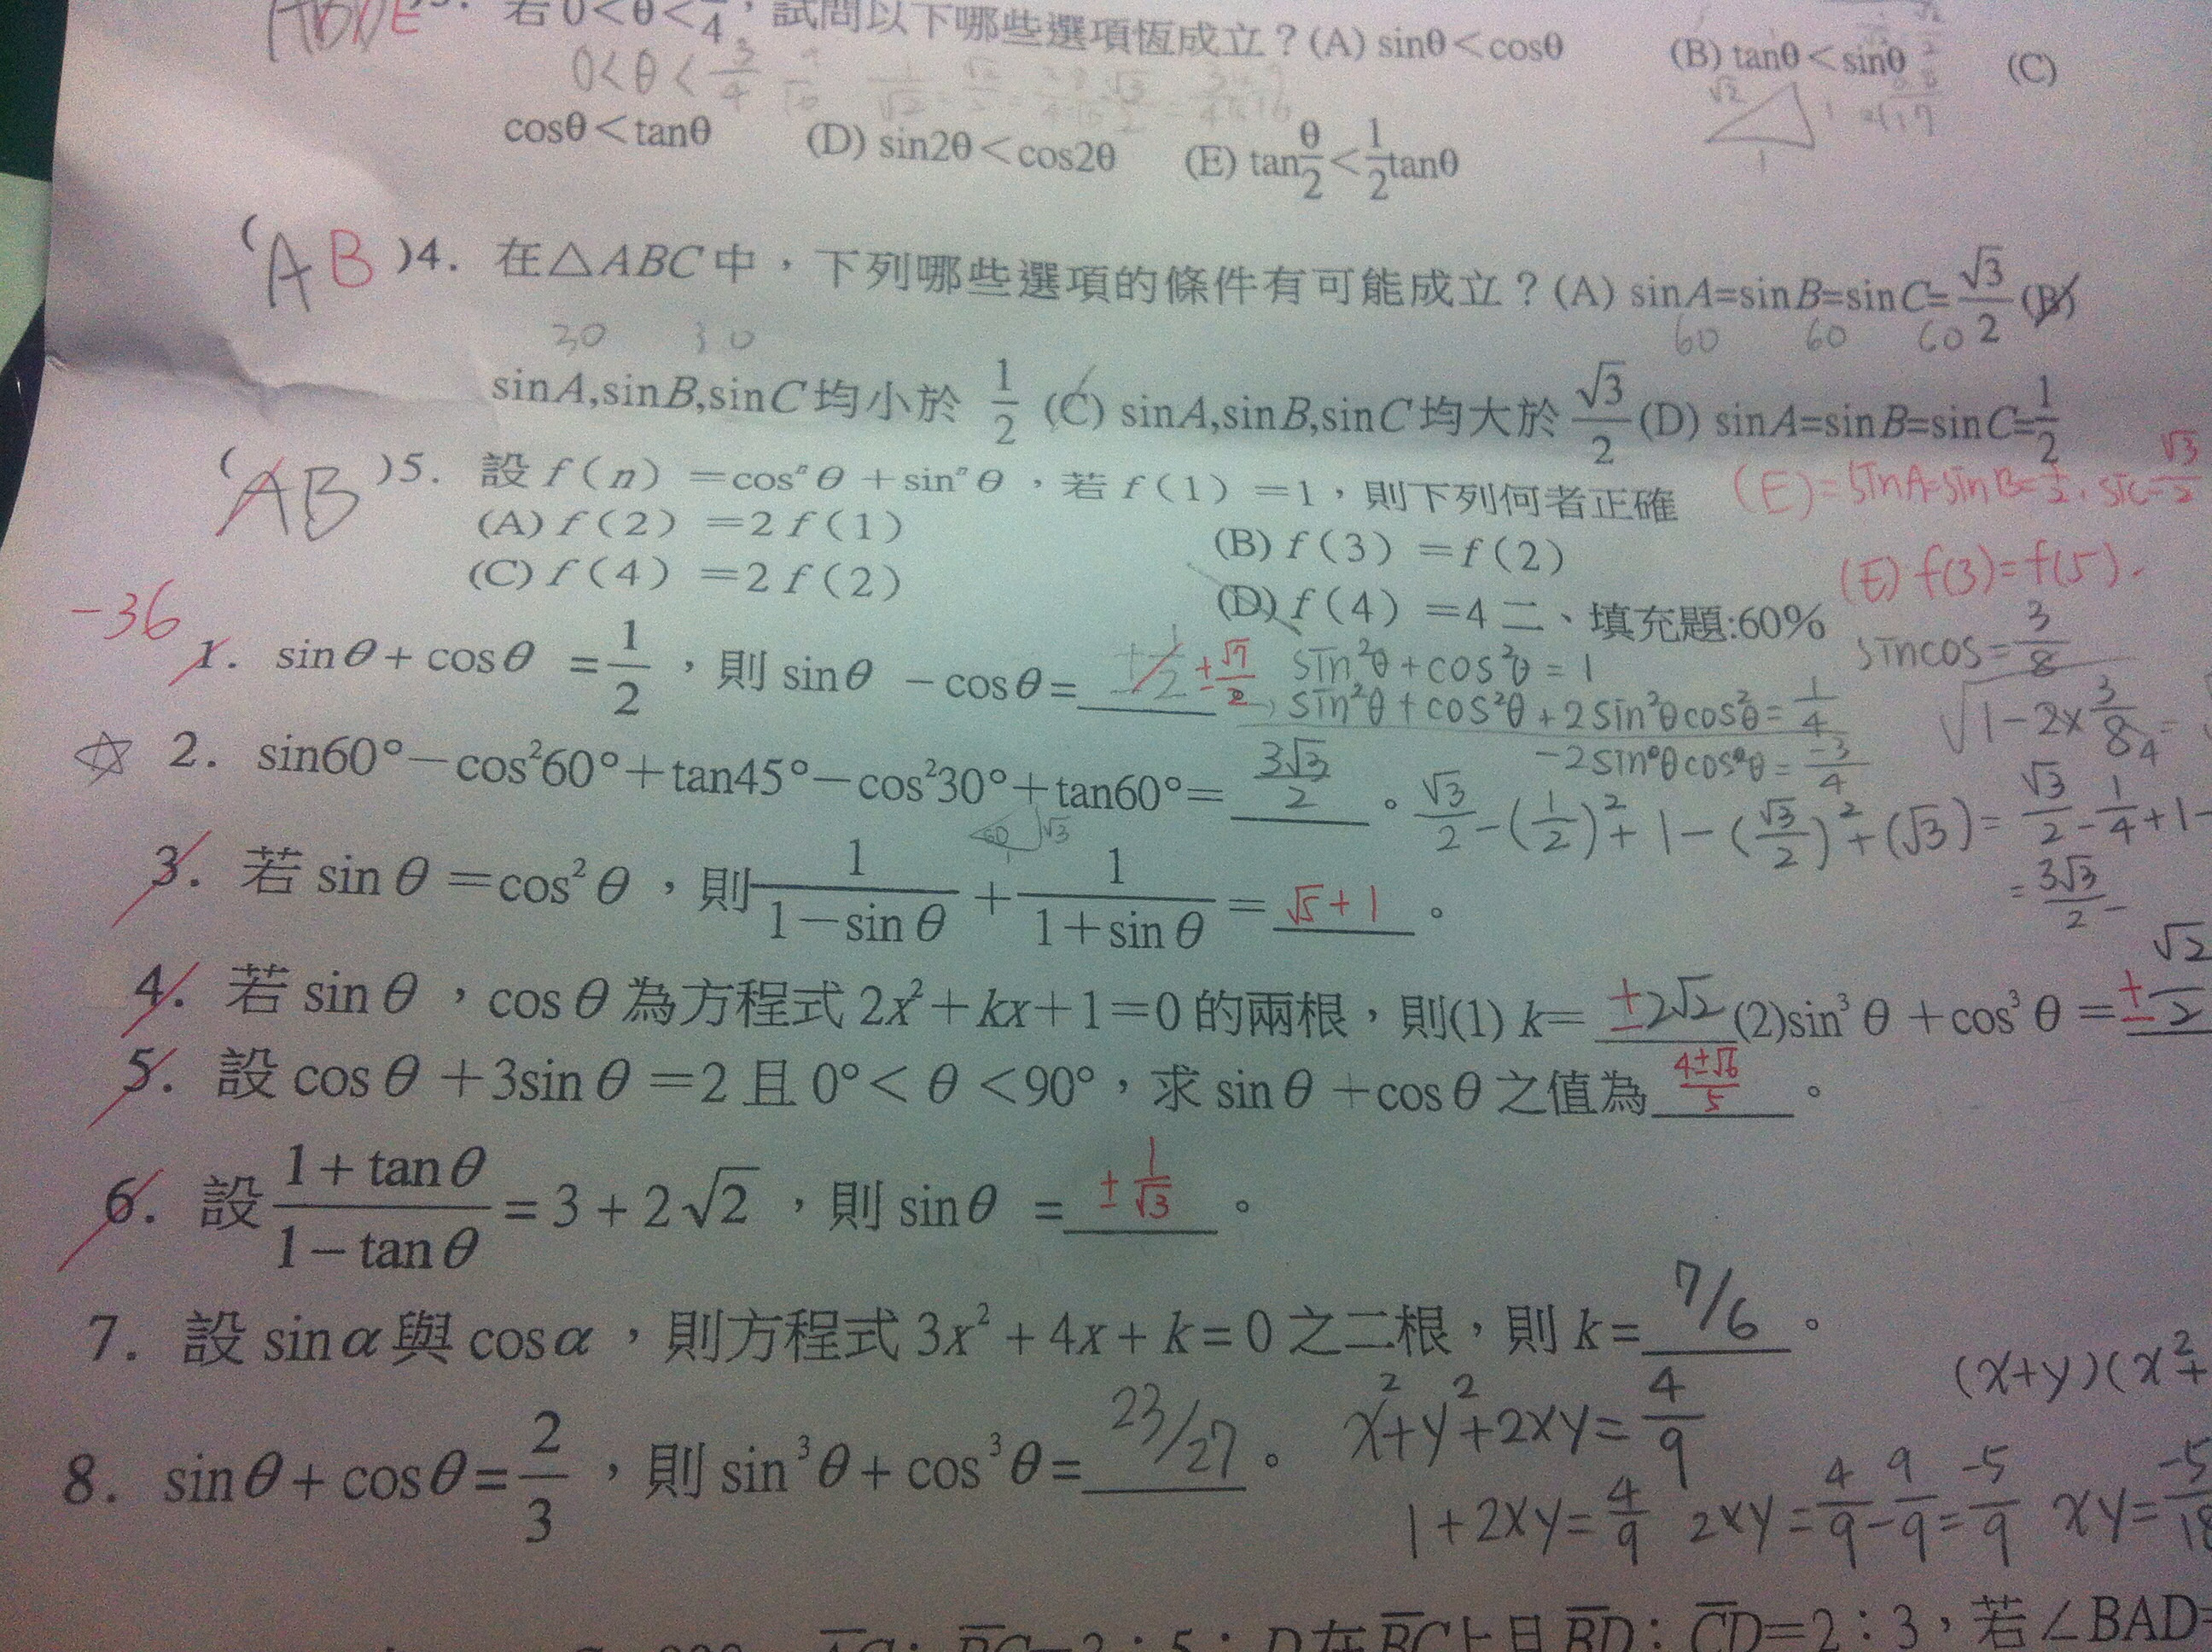 ABDE 3. 若 0<θ<π/4，試問以下哪些選項恆成立？(A) sinθ<cosθ (B) tanθ<sinθ (C)
0<θ<3/4
cosθ<tanθ (D) sin2θ<cos2θ (E) tanθ/2<1/2tanθ
√2 1 1
(AB)4. 在△ABC中，下列哪些選項的條件有可能成立？(A) sinA=sinB=sinC=√3/2 (B)
30 30 60 60 60
sinA,sinB,sinC均小於 1/2 (C) sinA,sinB,sinC均大於√3/2 (D) sinA=sinB=sinC=1/2
(E)=sinA=sinB=1/2, sinC=√3/2
(AB)5. 設 f(n)=cosⁿθ+sinⁿθ，若 f(1)=1，則下列何者正確
(A) f(2)=2f(1) (B) f(3)=f(2)
(C) f(4)=2f(2) (D) f(4)=4 二、填充題:60%
(E) f(3)=f(5).
-36
1. sinθ+cosθ=1/2，則 sinθ-cosθ=±√7/2
sin²θ+cos²θ=1
sin²θ+cos²θ+2sin²θcos²θ=1/4
-2sinθcosθ=-3/4
sincos=3/8
√1-2×3/8 4=
☆ 2. sin60°-cos²60°+tan45°-cos²30°+tan60°=3√3/2。
√3/2-(1/2)²+1-(√3/2)²+(√3)=√3/2-1/4+1-
=3√3/2
60 √3
3. 若 sinθ=cos²θ，則1/1-sinθ+1/1+sinθ=√5+1。
4. 若 sinθ，cosθ為方程式 2x²+kx+1=0 的兩根，則(1) k=±2√2 (2)sin³θ+cos³θ=±√2/2
5. 設 cosθ+3sinθ=2 且 0°<θ<90°，求 sinθ+cosθ 之值為4±√6/5。
6. 設 1+tanθ/1-tanθ=3+2√2，則 sinθ=±1/√3。
7. 設 sinα與 cosα，則方程式 3x²+4x+k=0 之二根，則 k=7/6。
(x+y)(x²+
8. sinθ+cosθ=2/3，則 sin³θ+cos³θ=23/27。
x²+y²+2xy=4/9
1+2xy=4/9 2xy=4/9-9/9=-5/9 xy=-5/18
D在BC上且BD：CD=2：3，若∠BAD=